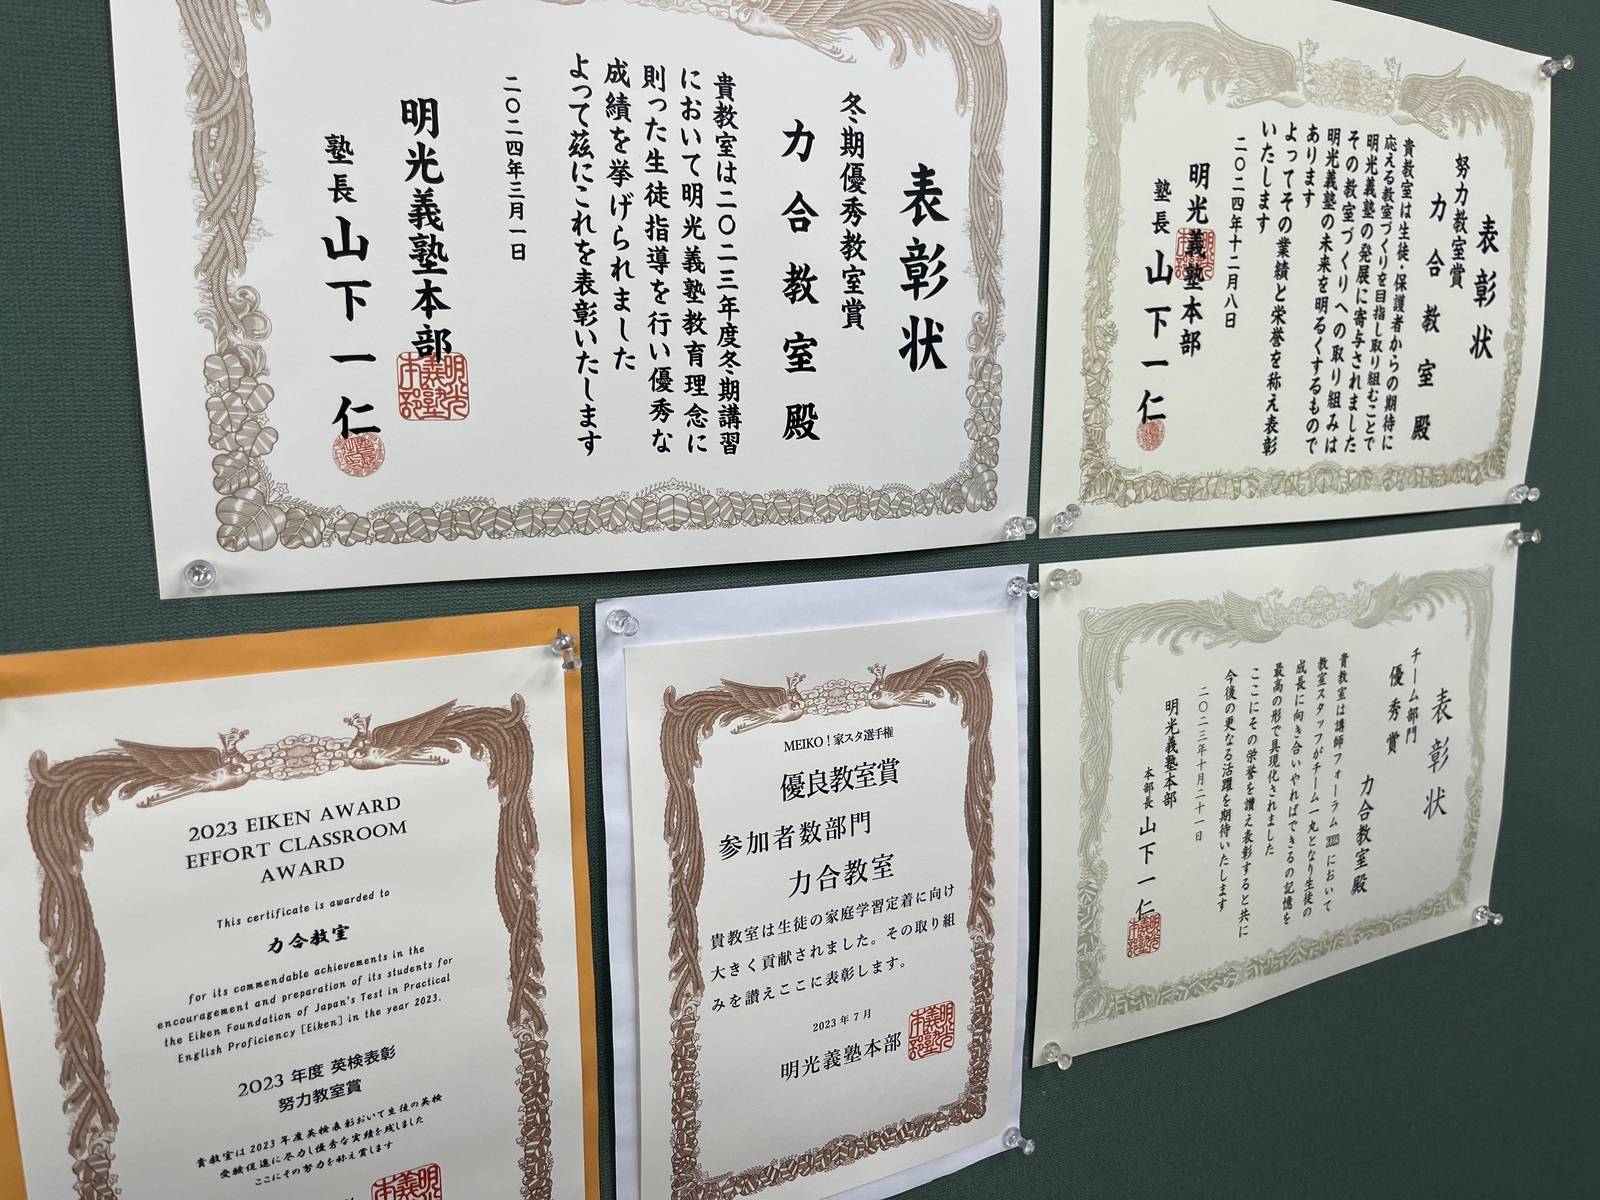 表彰状
冬期優秀教室賞
力合教室殿
貴教室は二〇二三年度冬期講習
において明光義塾教育理念に
則った生徒指導を行い優秀な
成績を挙げられました
よって茲にこれを表彰いたします
二〇二四年三月一日
明光義塾本部
塾長 山下一仁
表彰状
努力教室賞
力合教室殿
貴教室は生徒・保護者からの期待に
応える教室づくりを目指し取り組むことで
明光義塾の発展に寄与されました
その教室づくりへの取り組みは
明光義塾の未来を明るくするもので
あります
よってその業績と栄誉を称え表彰
いたします
二〇二四年十二月八日
明光義塾本部
塾長 山下一仁
2023 EIKEN AWARD
EFFORT CLASSROOM
AWARD
This certificate is awarded to
力合教室
for its commendable achievements in the
encouragement and preparation of its students for
the Eiken Foundation of Japan's Test in Practical
English Proficiency [Eiken] in the year 2023.
2023 年度 英検表彰
努力教室賞
貴教室は2023年度英検表彰おいて生徒の英検
受験促進に尽力し優秀な実績を残しました
ここにその努力を称え賞します
MEIKO！家スタ選手権
優良教室賞
参加者数部門
力合教室
貴教室は生徒の家庭学習定着に向け
大きく貢献されました。その取り組
みを讃えここに表彰します。
2023年7月
明光義塾本部
明光義塾本部
表彰状
チーム部門
優秀賞
力合教室殿
貴教室は講師フォーラム2023において
教室スタッフがチーム一丸となり生徒の
成長に向き合いやればできるの記憶を
最高の形で具現化されました
ここにその栄誉を讃え表彰すると共に
今後の更なる活躍を期待いたします
二〇二三年十月二十一日
明光義塾本部
本部長 山下一仁